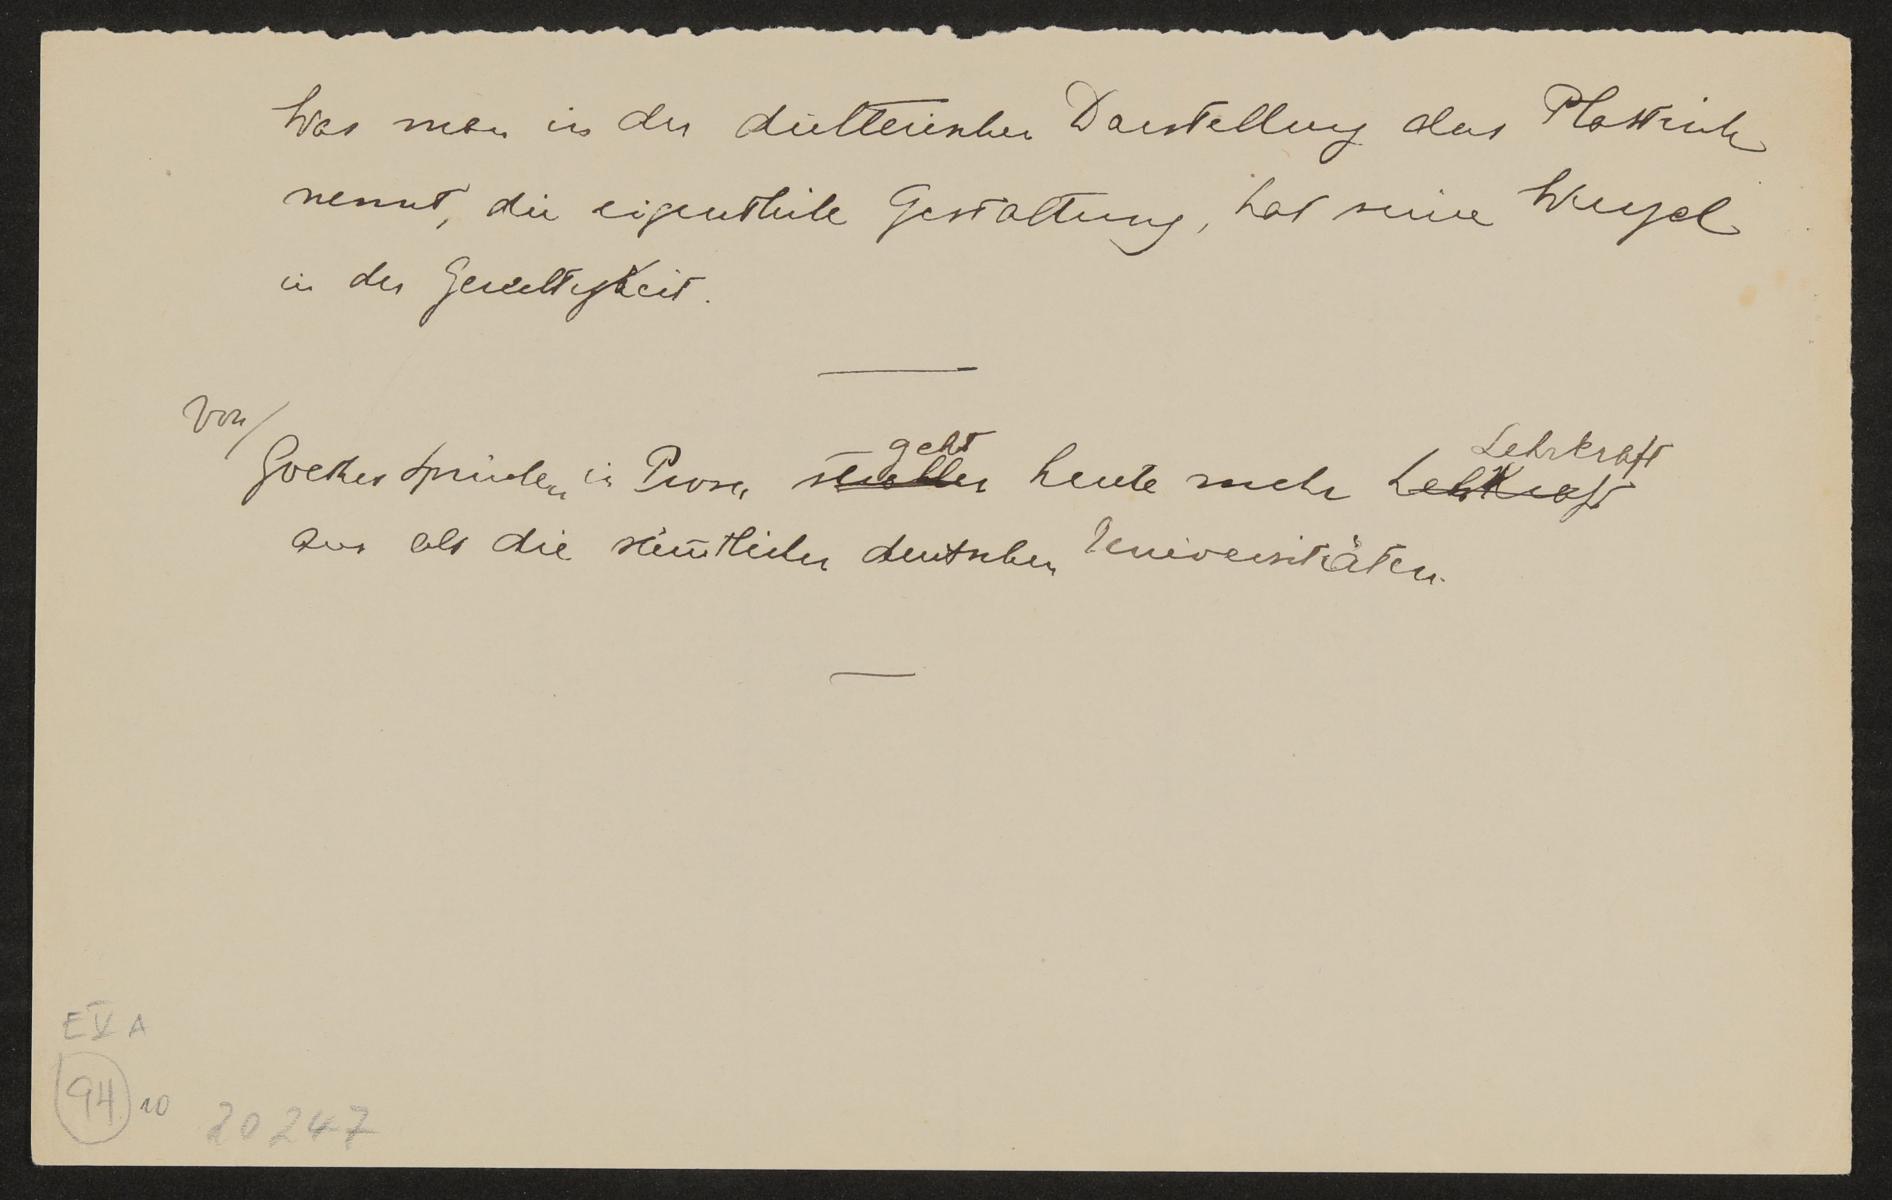 Was man in der dichterischen Darstellung das Plastische
nennt, die eigentliche Gestaltung, hat seine Wurzel
in der Gerechtigkeit.
von/
geht Lehrkraft
Goethes Sprüchen in Prosa strahlen heute mehr Lehrkraft
aus als die sämtlichen deutschen Universitäten.
E V A
94 10 20247